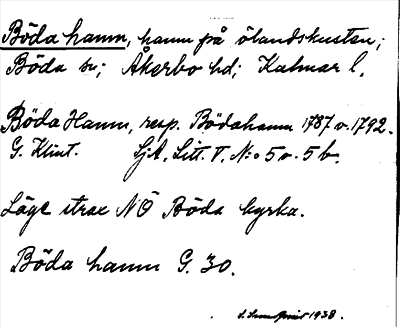 Böda hamn, hamn på ölandskusten;
Böda sn; Åkerbo hd; Kalmar l.
Böda Hamn, resp. Bödahamn 1787 o. 1792.
G. Klint. SjA, Litt. V. N:o 5 o. 5 b.
Läge strax NÖ Böda kyrka.
Böda hamn G. 30.
1938.